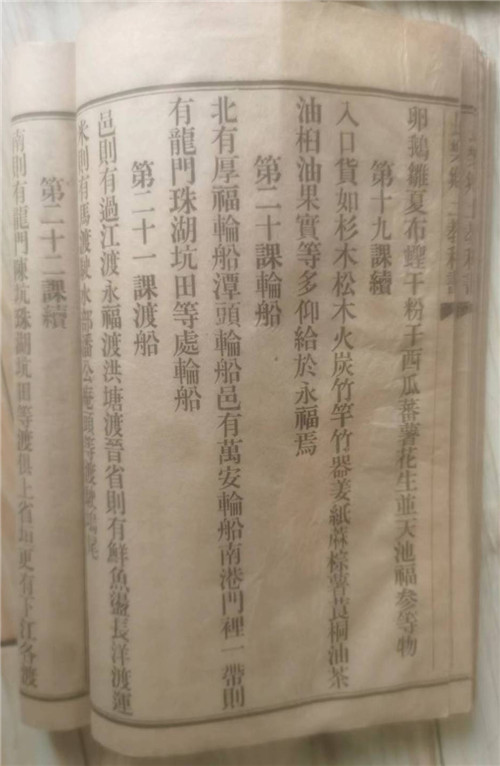 卵鵝雛夏布蟶干粉干西瓜蕃薯花生並天池福參等物
第十九課續
入口貨如杉木松木火炭竹竿竹器姜紙蔴棕薯莨桐油茶
油桕油果實等多仰給於永福焉
第二十課輪船
北有厚福輪船潭頭輪船邑有萬安輪船南港門裡一帶則
有龍門珠湖坑田等處輪船
第二十一課渡船
邑則有過江渡永福渡洪塘渡晉省則有鮮魚鹽長洋渡運
米則有馬渡
第二十二課續
南則有龍門陳坑珠湖坑田等渡俱上省垣更有下江各渡